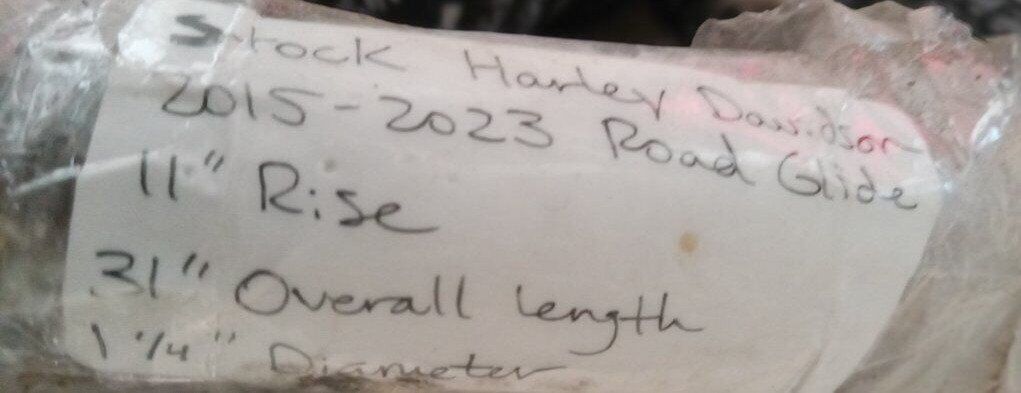 Stock Harley Davidson
2015-2023 Road Glide
11" Rise
31" Overall length
1 1/4" Diameter